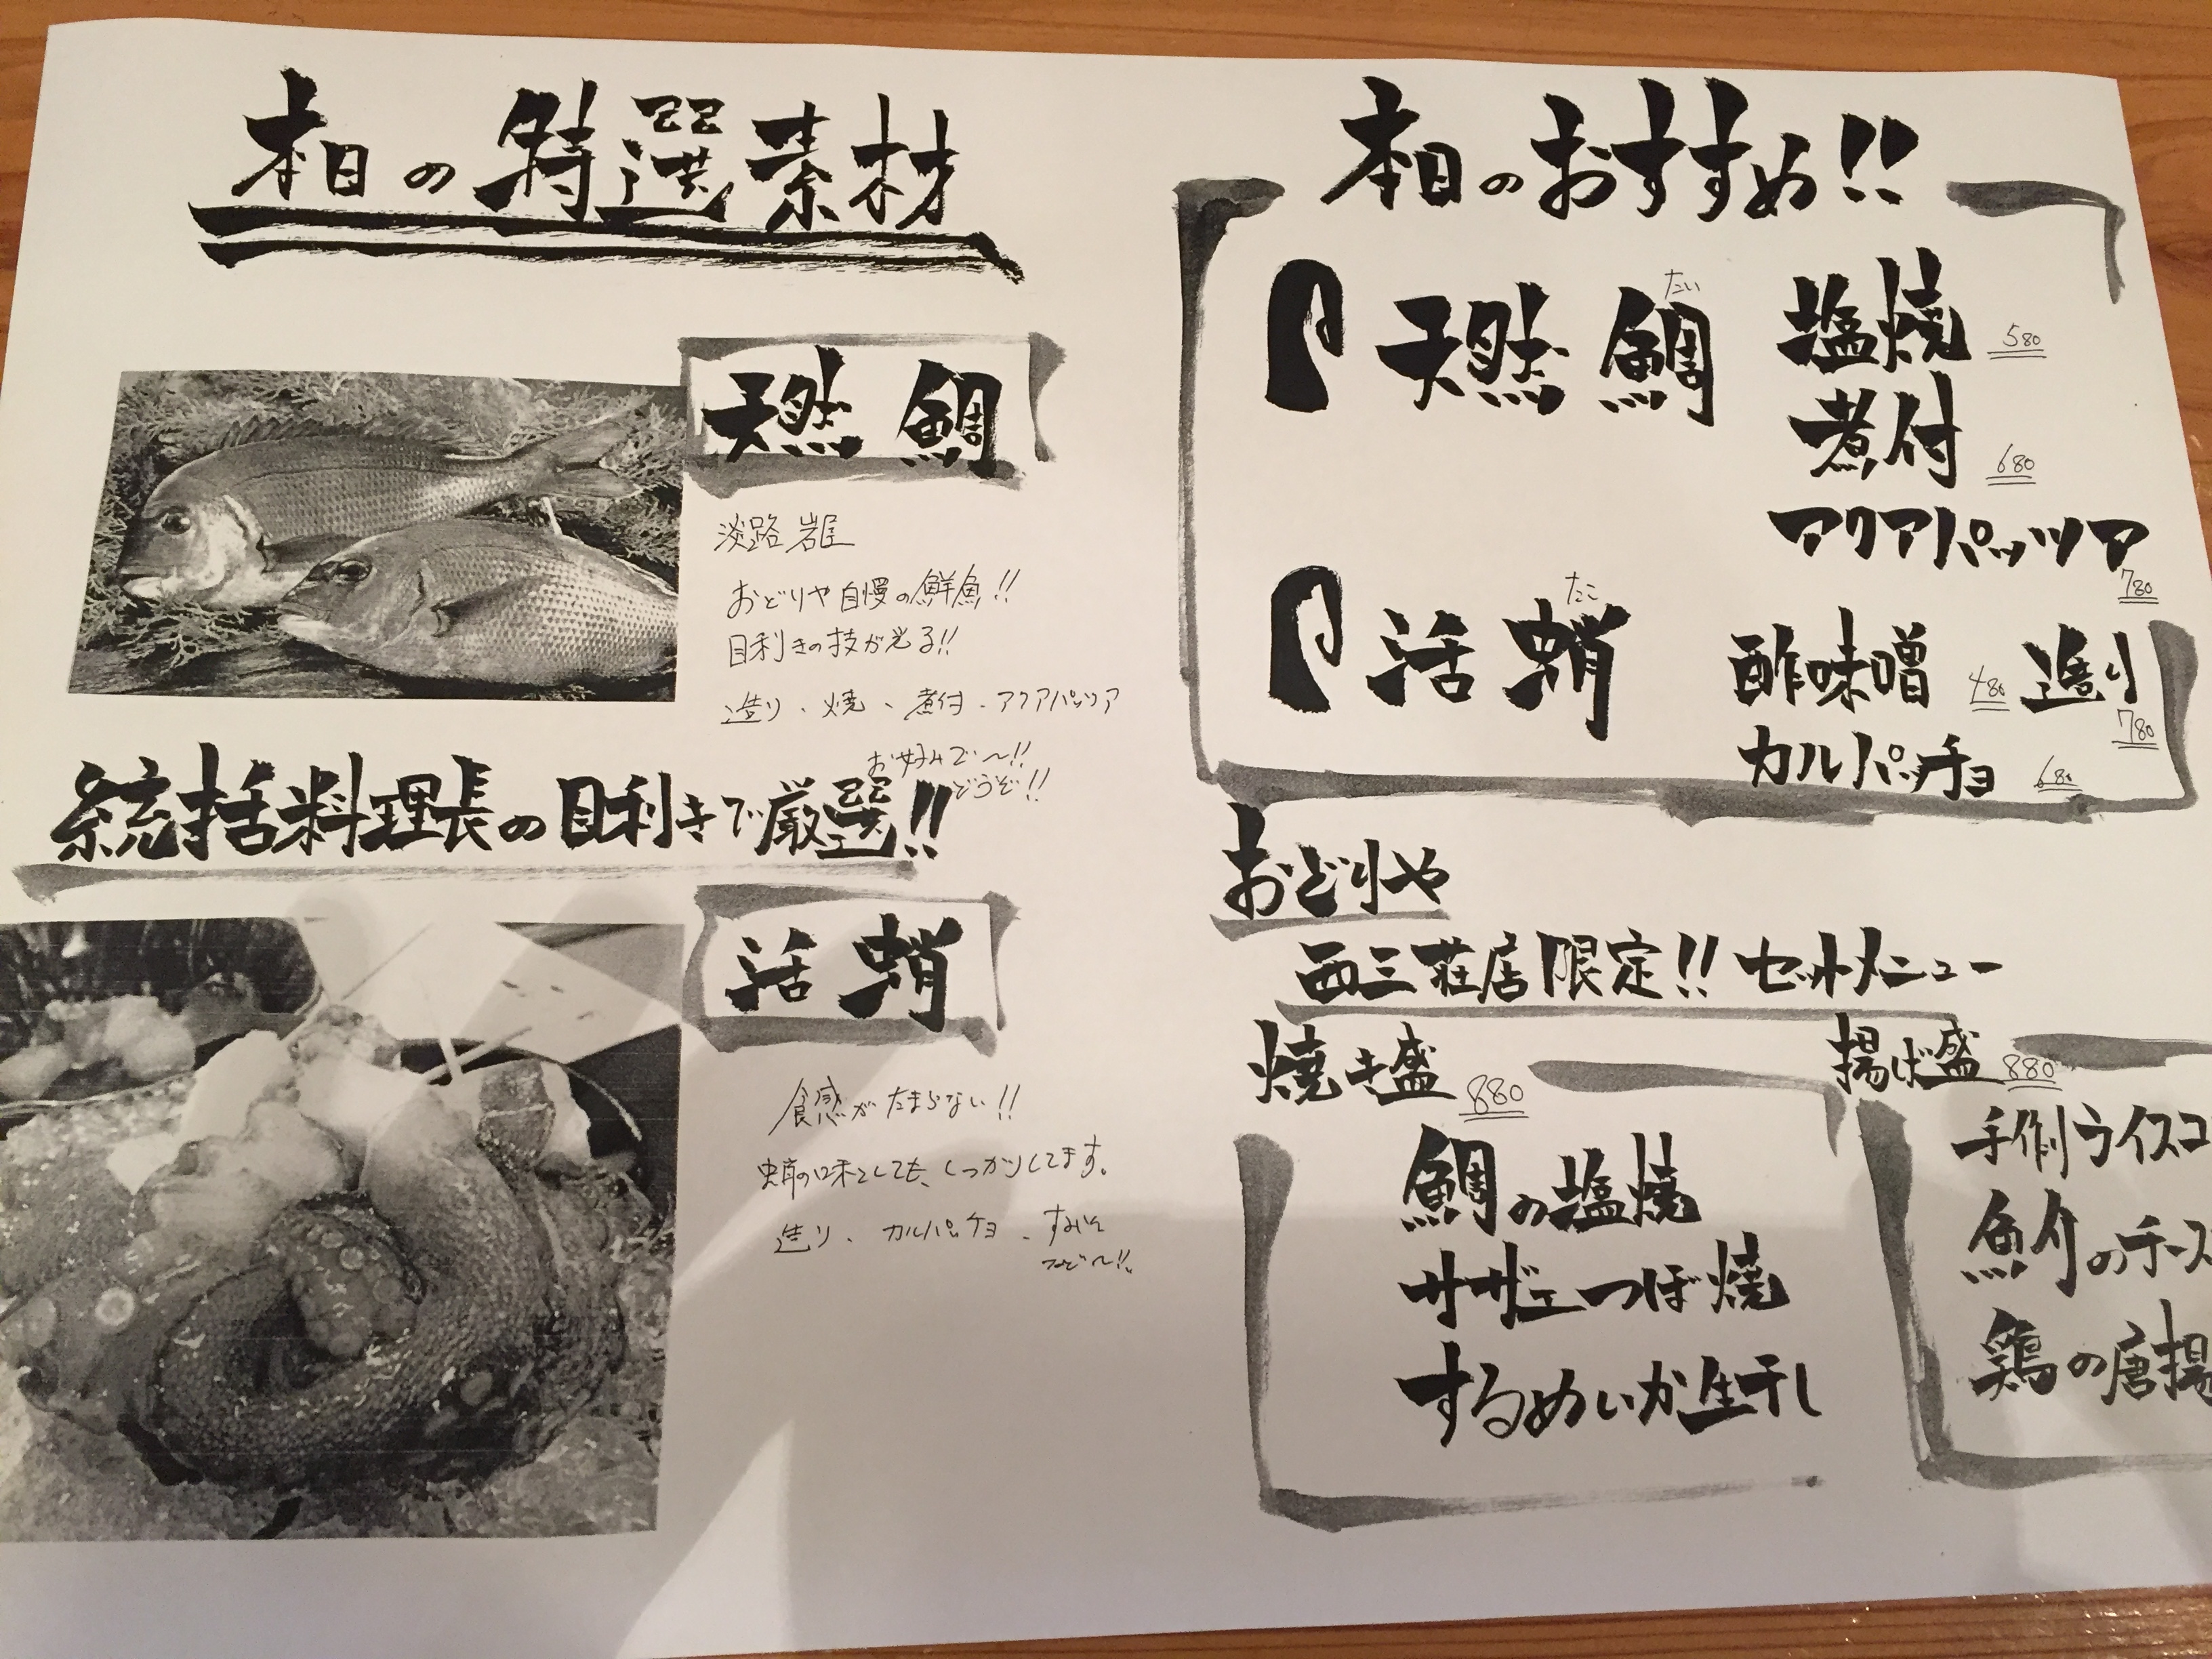 本日の特選素材
天然 鯛
淡路 岩屋
おどりや自慢の鮮魚!!
目利きの技が光る!!
造り、焼、煮付、アクアパッツア
お好みで〜!!
どうぞ!!
統括料理長の目利きで厳選!!
活 蛸
食感がたまらない!!
蛸の味としても、しっかりしてます。
造り、カルパッチョ、すみそ
などで〜!!
本日のおすすめ!!
天然 鯛 塩焼 580
たい
煮付 680
アクアパッツア
780
たこ
活 蛸 酢味噌 480 造り
780
カルパッチョ 680
おどりや
西三荘店限定!! セットメニュー
焼き盛 880
鯛の塩焼
サザエつぼ焼
するめいか生干し
揚げ盛 880
手作りライスコ
のチーズ
鶏の唐揚